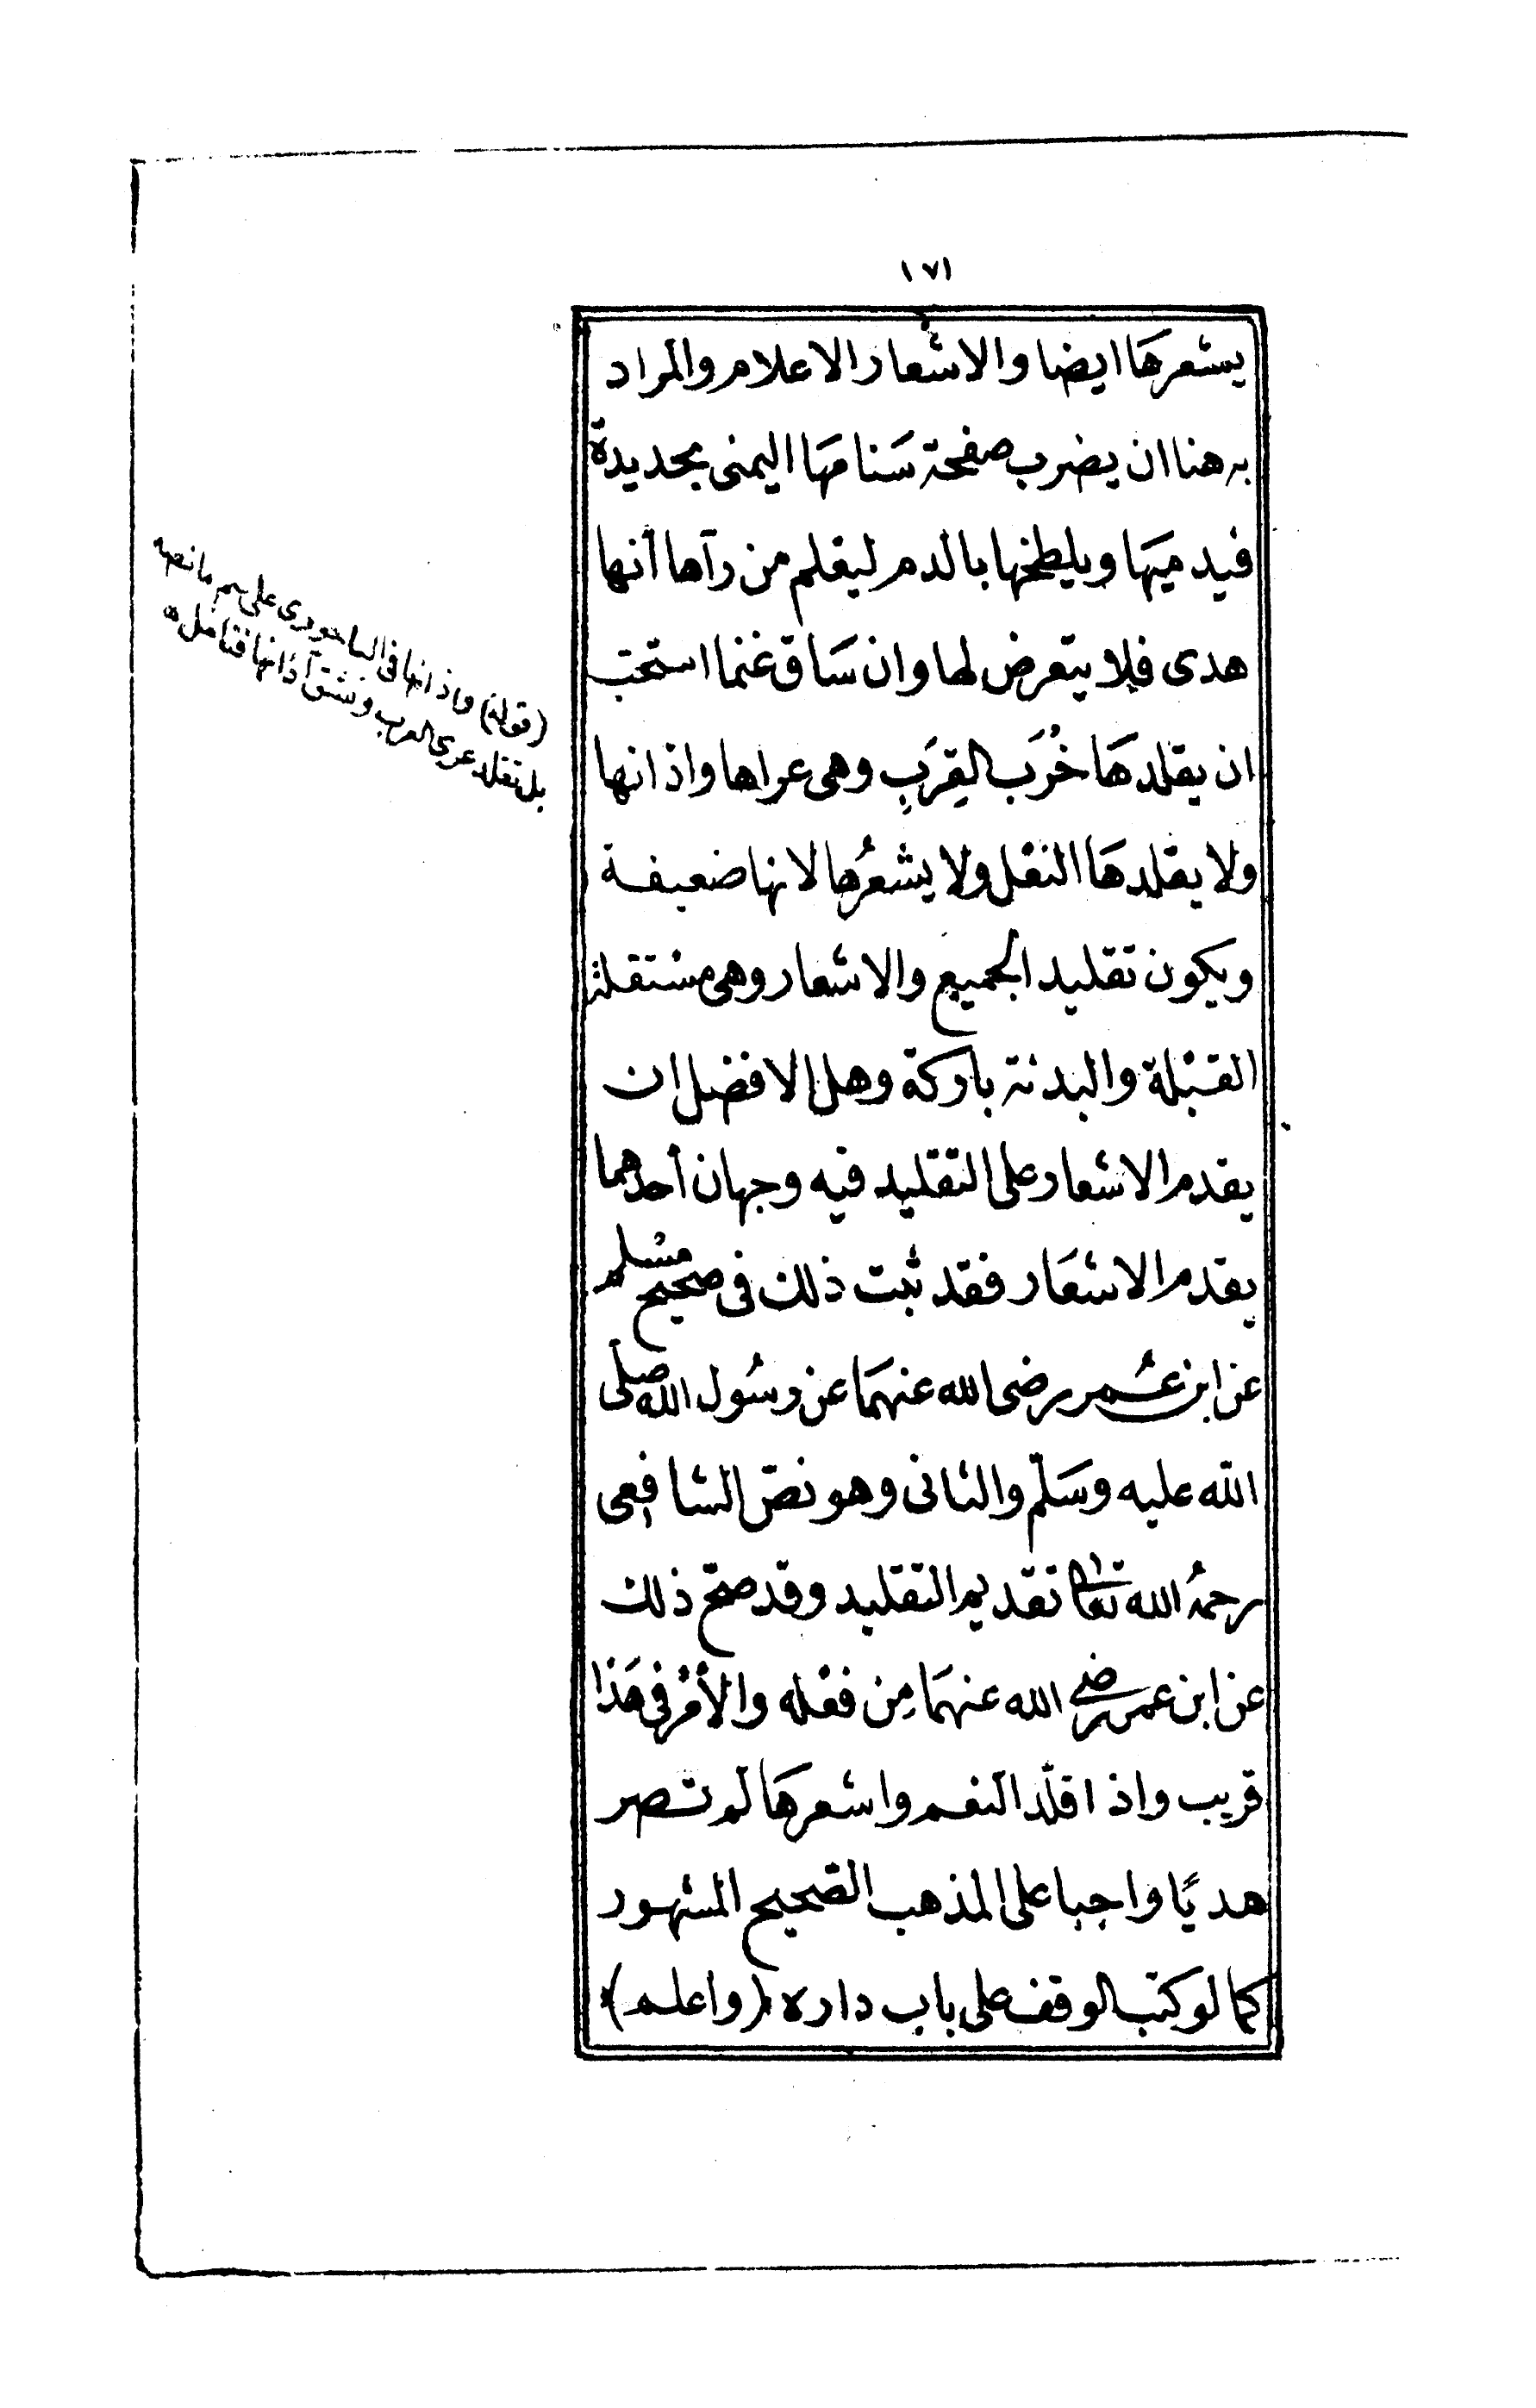 ١٧١
يشعرها ايضا والاشعار الاعلام والمراد
به هنا ان يضرب صفحة سَنامهَا اليمنى بحديدة
فيدميَها ويلطخها بالدم ليعْلم من رآها أنها
هدى فلا يتعرض لها وان سَاق غنما استحب
ان يقلدهَا خُرَب القِرَبِ وهى عراها واذانها
ولا يقلدهَا النعْل ولا يشعُرها لانها ضعيفة
ويكون تقليد الجميع والاشعار وهى مستقبلة
القبْلة والبدنة باركة وهل الافضل ان
يقدم الاشعار على التقليد فيه وجهان أحدهما
يقدم الاشعَار فقد ثبت ذلك فى صحيح مسْلم
عن ابن عُمر رضى الله عنهمَا عن رسُول الله صلى
الله عليه وسَلّم والثانى وهو نصّ الشافعى
رحمهُ الله تعالى تقديم التقليد وقد صحّ ذلك
عن ابن عمر رضى الله عنهمَا مِن فعْله والأمْر فى هَذا
قريب واذا قلّد النعم واشعرهَا لم تصر
هديًا واجبا على المذهب الصّحيح المشهور
كما لو كتب الوقف على باب داره (واعلم)
(قوله) واذانها فى الباجورى على سم ما نصه
بل تقلد عرى القرب وتشق آذانها فتأمل ه